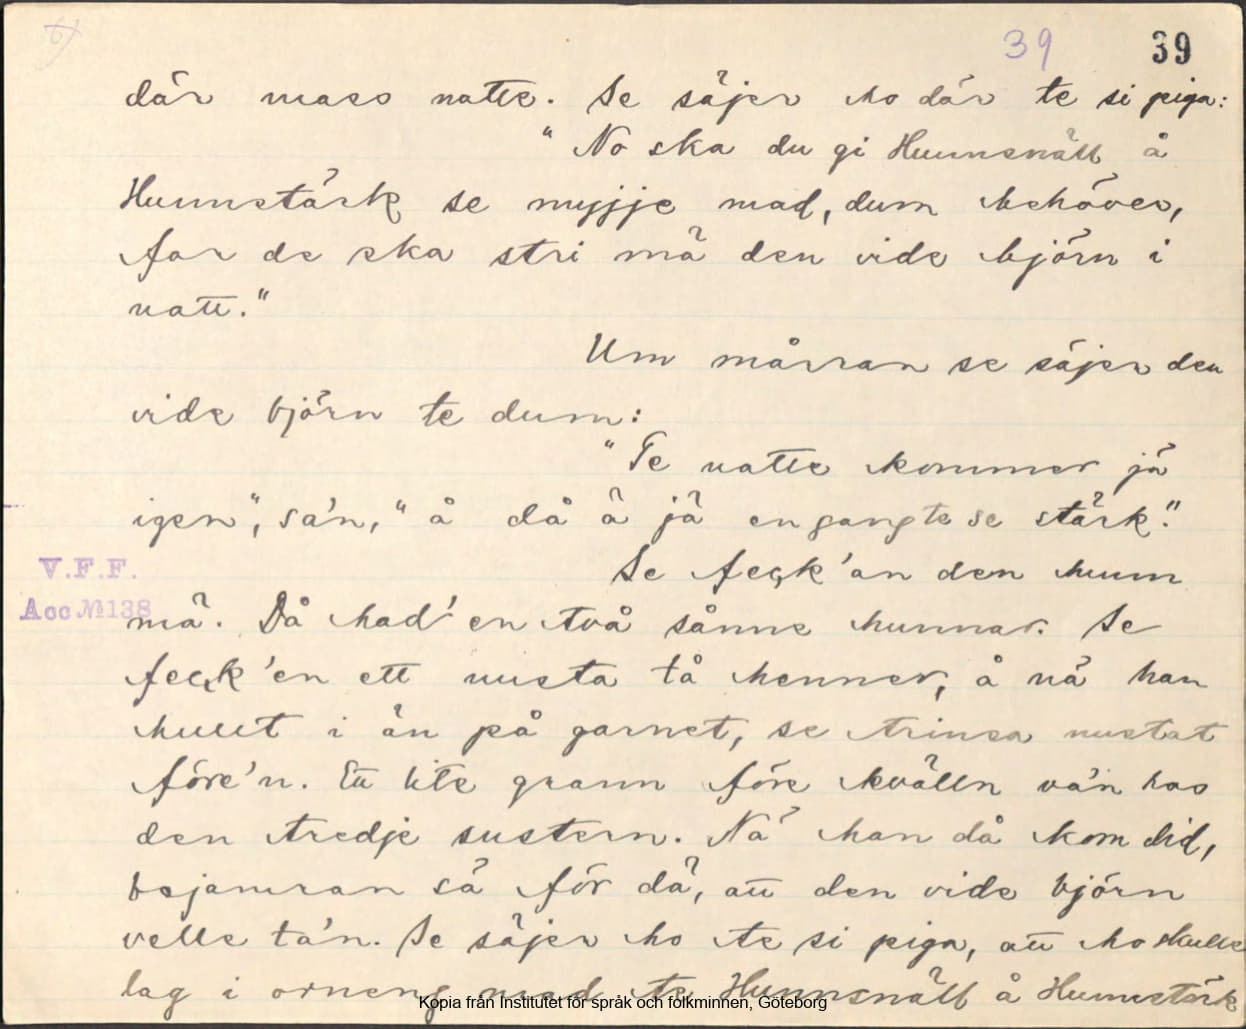 6)
39 39
där mass natte. Se säjer ho där te si piga:
"No ska du gi Hunnsnäll å
Hunnstärk se myjje mad, dum behöver,
far de ska stri mä den vide björn i
natt."
Um mårran se säjer den
vide björn te dum:
"Te natte kommer jä
igen", sa'n, "å då ä jä en gang te se stärk."
Se feck'an den hunn
mä. Då had' en två sånne hunnar. Se
feck'en ett nusta tå henner, å nä han
hullt i än på garnet, se trinsa nustat
före'n. Ett lite grann före kvälln va'n hos
den tredje sustern. Nä han då kom did,
bejamran sä för dä, att den vide björn
velle ta'n. Se säjer ho te si piga, att ho skulle
lag i orneng mad te Hunnsnäll å Hunnstärk
V.F.F.
Acc № 138
Kopia från Institutet för språk och folkminnen, Göteborg